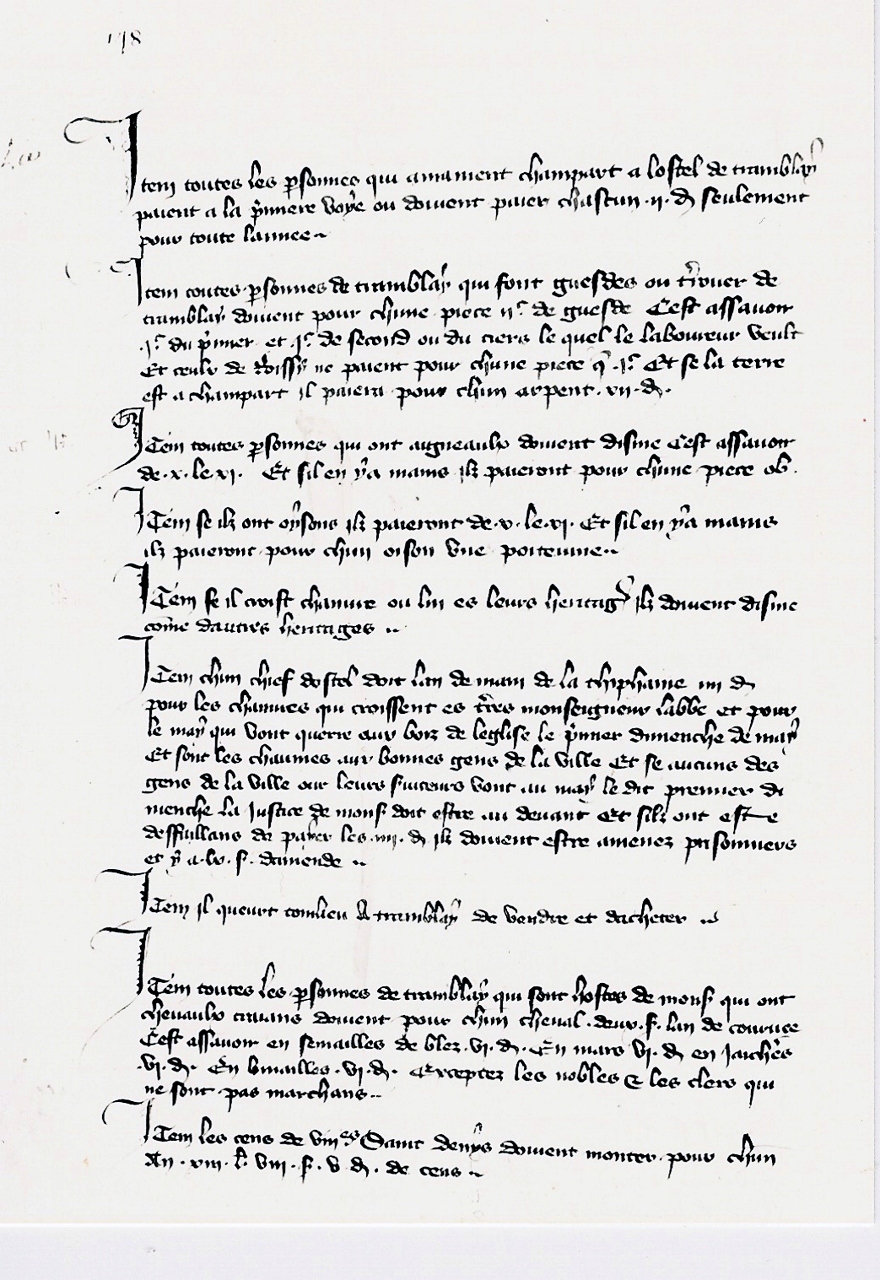 178
Item toutes les psonnes qui amainent champart a lostel de tramblay
paient a la pmiere voye ou doivent paier chascun .ii. d seulement
pour toute lannee
Item toutes psonnes de tramblay qui font guesdes ou trouer de
tramblay doivent pour chune piece de guesde Cest assavoir
du pmier et de second ou du tiers le quel le laboureur veult
Et ceulx de Roissy ne paient pour chune piece q Et se la terre
est a champart il paiera pour chun arpent .vii. d.
Item toutes psonnes qui ont aigneaulx doivent disme Cest assavoir
de .x. le xi. Et sil en ya mains ilz paieront pour chune piece ob.
Item se ilz ont oysons ilz paieront de .x. le .xi. Et sil en ya mains
ilz paieront pour chun oison une poitevine
Item se il croist chanvre ou lin es leurs heritag ilz doivent disme
come dautres heritages
Item chun chief dostel doit lan de main de la thiphaine iiii d
pour les chaumes qui croissent es tres monseigneur labbe et pour
le may qui vont querre aux boiz de leglise le pmier dimenche de may
Et sont les chaumes aux bonnes gens de la ville Et se aucuns des
gens de la ville ou leurs vont au may le dit premier di
menche la Justice de mons doit estre au devant Et silz ont este
deffaillans de payer les .iiii. d ilz doivent estre amenez prisonniers
et y a .lx. s. damende
Item il queurt tonlieu A tramblay de vendre et dacheter
Item toutes les psonnes de tramblay qui sont hostes de mons qui ont
chevaulx traians doivent pour chun cheval .deux. s. lan de courvee
Cest assavoir en semailles de blez .vi. d. En mars vi. d en Jachies
.vi. d. En binailles .vi. d. Exceptez les nobles & les clers qui
ne sont pas marchans
Item les cens de Saint denys doivent monter pour chun
an .xiii. l. viii. s. v d. de cens